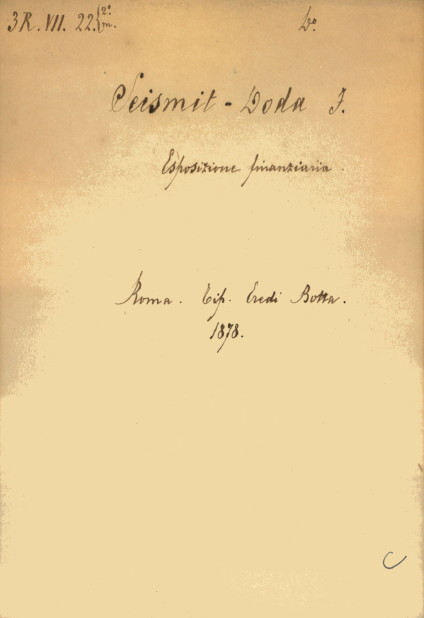 3R. VII. 22. {2º m.
Dº
Seismit - Doda F.
Esposizione finanziaria.
Roma. Tip. Eredi Botta.
1878.
C